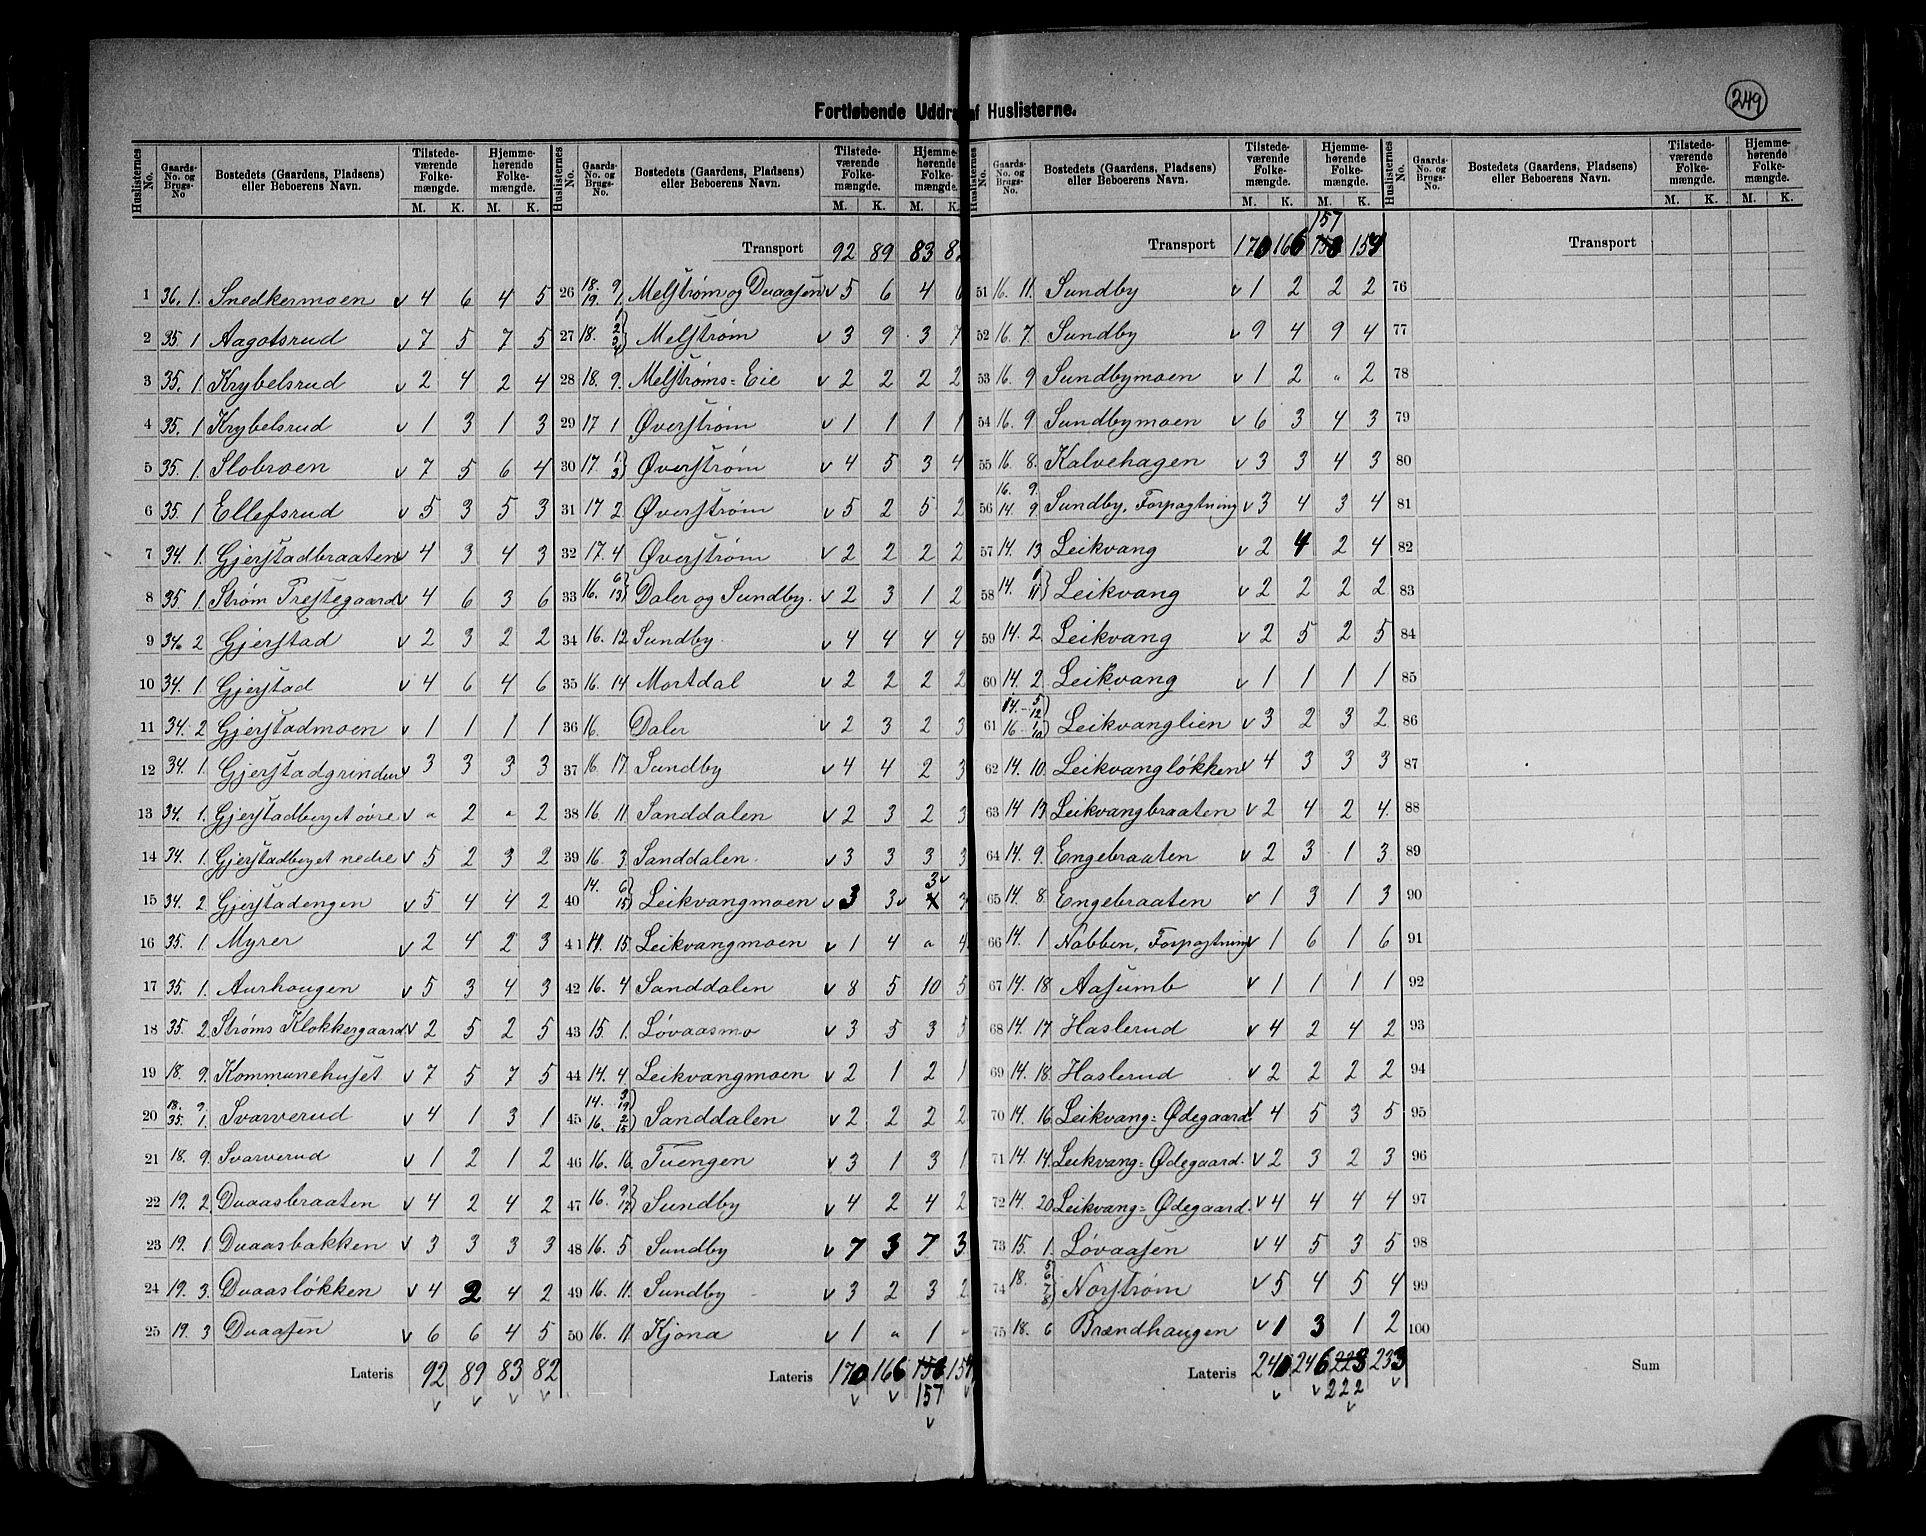 249
Fortløbende Uddrag af Huslisterne.
Huslisternes No. Gaards-No. og Brugs-No Bostedets (Gaardens, Pladsens) eller Beboerens Navn. Tilstedeværende Folkemængde. M. K. Hjemmehørende Folkemængde. M. K.
1 36. 1. Snedkermoen v 4 6 4 5
2 35. 1 Aagotsrud v 7 5 7 5
3 35. 1. Krybelsrud v 2 4 2 4
4 35. 1 Krybelsrud v 1 3 1 3
5 35. 1. Slobroen v 7 5 6 4
6 35. 1 Ellefsrud v 5 3 5 3
7 34. 1. Gjerstadbraaten v 4 3 4 3
8 35. 1. Strøm Prestegaard v 4 6 3 6
9 34. 2 Gjerstad v 2 3 2 2
10 34. 1. Gjerstad v 4 6 4 6
11 34. 2 Gjerstadmoen v 1 1 1 1
12 34. 1. Gjerstadgrinden v 3 3 3 3
13 34. 1. Gjerstadberget øvre v " 2 " 2
14 34. 1. Gjerstadberget nedre v 5 2 3 2
15 34. 2 Gjerstadengen v 5 4 4 2
16 35. 1. Myrer v 2 4 2 3
17 35. 1. Aurhaugen v 5 3 4 3
18 35. 2. Strøms Klokkergaard v 2 5 2 5
19 18. 9. Kommunehuset v 7 5 7 5
20 18. 9. 35. 1. Svarverud v 4 1 3 1
21 18. 9. Svarverud v 1 2 1 2
22 19. 2 Duaasbraaten v 4 2 4 2
23 19. 1 Duaasbakken v 3 3 3 3
24 19. 3. Duaasløkken v 4 2 4 2
25 19. 3 Duaasen v 6 6 4 5
Lateris 92 89 83 82
Huslisternes No. Gaards-No. og Brugs-No. Bostedets (Gaardens, Pladsens) eller Beboerens Navn. Tilstedeværende Folkemængde. M. K. Hjemmehørende Folkemængde. M. K.
Transport 92 89 83 82
26 18. 9 19. 1. Melstrøm og Duaasen v 5 6 4 6
27 18. Melstrøm v 3 9 3 7
28 18. 9. Melstrøms=Eie v 2 2 2 2
29 17 1 Øverstrøm v 1 1 1 1
30 17. 1 3 Øverstrøm v 4 5 3 4
31 17 2 Øverstrøm v 5 2 5 2
32 17. 4 Øverstrøm v 2 2 2 2
33 16. 6 13 Daler og Sundby. v 2 3 1 2
34 16. 12 Sundby. v 4 4 4 4
35 16. 14 Mortdal v 2 2 2 2
36 16. Daler v 2 3 2 3
37 16. 17 Sundby v 4 4 2 3
38 16. 11 Sanddalen v 2 3 2 3
39 16. 3. Sanddalen. v 3 3 3 3
40 14. 6 15 Leikvangmoen v 3 3 v 3 v 3
41 14. 15. Leikvangmoen v 1 4 " 4
42 16. 4 Sanddalen v 8 5 10 5
43 15. 1. Løvaasmo v 3 5 3 5
44 14. 4. Leikvangmoen v 2 1 2 1
45 14. 3 19 16. 2 15 Sanddalen v 2 2 2 2
46 16. 16. Tuengen v 3 1 3 1
47 16. 9 12 Sundby v 4 2 4 2
48 16. 5 Sundby v 7 3 7 3
49 16. 11. Sundby v 3 2 3 2
50 16. 11. Kjona v 1 " 1 "
Lateris 170 166 157
Huslisternes No. Gaards-No. og Brugs-No. Bostedets (Gaardens, Pladsens) eller Beboerens Navn. Tilstedeværende Folkemængde. M. K. Hjemmehørende Folkemængde. M. K.
157
Transport 170 166
51 16. 11. Sundby v 1 2 2 2
52 16. 7. Sundby v 9 4 9 4
53 16. 9 Sundbymoen v 1 2 " 2
54 16. 9. Sundbymoen v 6 3 4 3
55 16. 8. Kalvehagen v 3 3 4 3
56 16. 9. 14. 9 Sundby, Forpagtning v 3 4 3 4
57 14. 13 Leikvang v 2 4 2 4
58 14. 11 Leikvang v 2 2 2 2
59 14. 2. Leikvang v 2 5 2 5
60 14. 2. Leikvang v 1 1 1 1
61 14. 5 12 16. 1 10 Leikvanglien v 3 2 3 2
62 14. 10. Leikvangløkken v 4 3 3 3
63 14. 13 Leikvangbraaten v 2 4 2 4.
64 14. 9. Engebraaten v 2 3 1 3
65 14. 8. Engebraaten v 1 3 1 3
66 14. 1 Nabben, Forpagtning v 1 6 1 6
67 14. 18. Aasumb v 1 1 1 1
68 14. 17 Haslerud v 4 2 4 2
69 14. 18. Haslerud v 2 2 2 2
70 14. 16. Leikvang=Ødegaard v 4 5 3 5
71 14. 14. Leikvang=Ødegaard. v 2 3 2 3
72 14. 20 Leikvang=Ødegaard. v 4 4 4 4
73 15. 1. Løvaasen v 4 5 3 5
74 18. 5 6 7 8 Norstrøm v 5 4 5 4
75 18. 6 Brændhaugen v 1 3 1 2
Lateris 240 246 223 233
222
Huslisternes No. Gaards-No. og Brugs-No. Bostedets (Gaardens, Pladsens) eller Beboerens Navn. Tilstedeværende Folkemængde. M. K. Hjemmehørende Folkemængde. M. K.
Transport
76
77
78
79
80
81
82
83
84
85
86
87
88
89
90
91
92
93
94
95
96
97
98
99
100
Sum